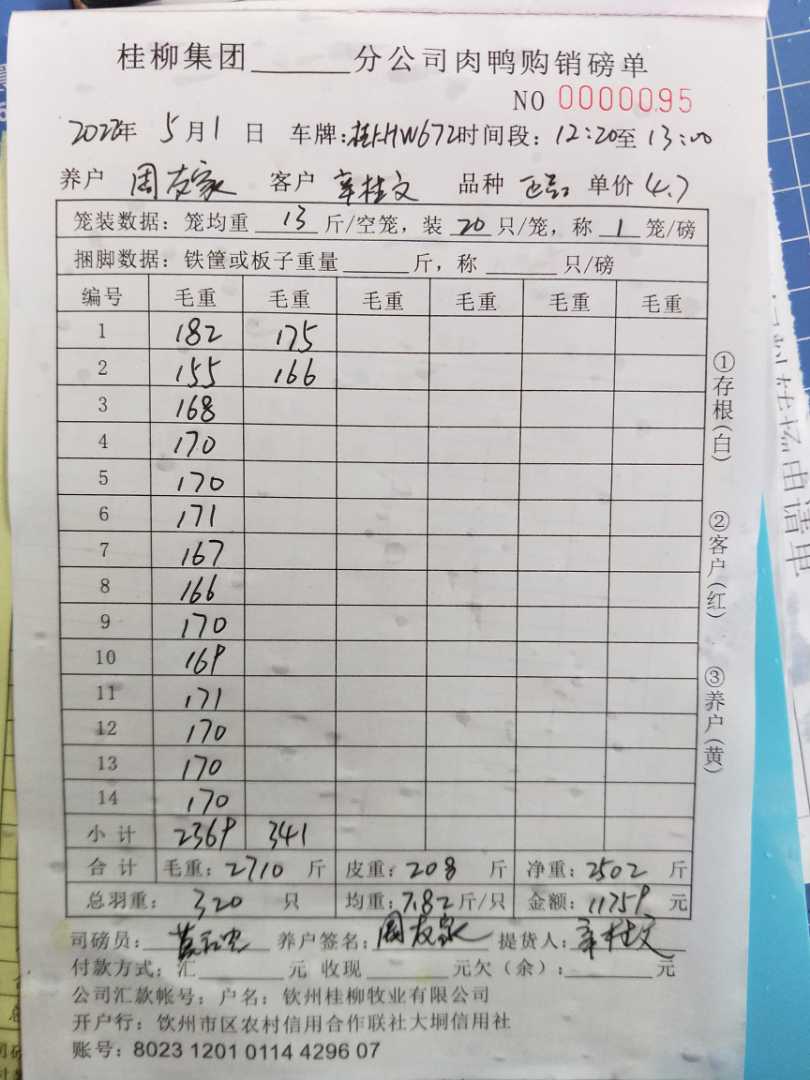 桂柳集团______分公司肉鸭购销磅单
NO 0000095
2022年 5月1日 车牌:桂HW672时间段:12:20至13:00
养户 周友家 客户 辛桂文 品种 单价 4.7
笼装数据:笼均重 13 斤/空笼,装 20 只/笼,称 1 笼/磅
捆脚数据:铁筐或板子重量______斤,称______只/磅
编号 毛重 毛重 毛重 毛重 毛重 毛重
1 182 175
2 155 166
3 168
4 170
5 170
6 171
7 167
8 166
9 170
10 169
11 171
12 170
13 170
14 170
小计 2369 341
合计 毛重:2710 斤 皮重:208 斤 净重:2502 斤
总羽重: 320 只 均重:7.82斤/只 金额:11759 元
司磅员: 养户签名:周友家 提货人:辛桂文
付款方式:汇______元 收现______元欠(余):______元
公司汇款帐号:户名:钦州桂柳牧业有限公司
开户行:钦州市区农村信用合作联社大垌信用社
账号:8023 1201 0114 4296 07
①存根(白) ②客户(红) ③养户(黄)